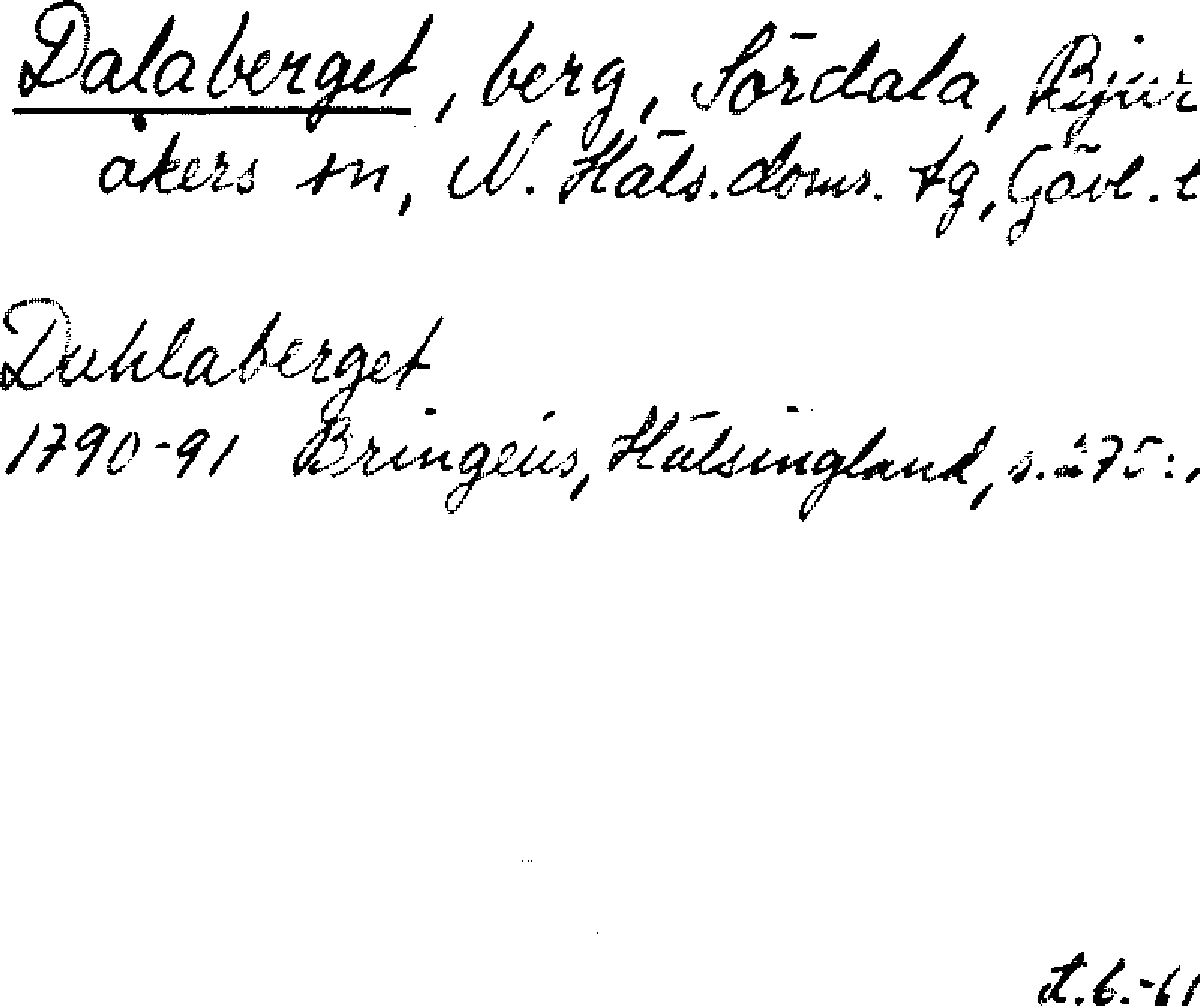 Dalaberget, berg, Sördala, Bjur
åkers sn, N. Häls. doms. tg, Gävl. l
Duhlaberget
1790-91 Bringéus, Hälsingland, s. 275:
t.b.-61